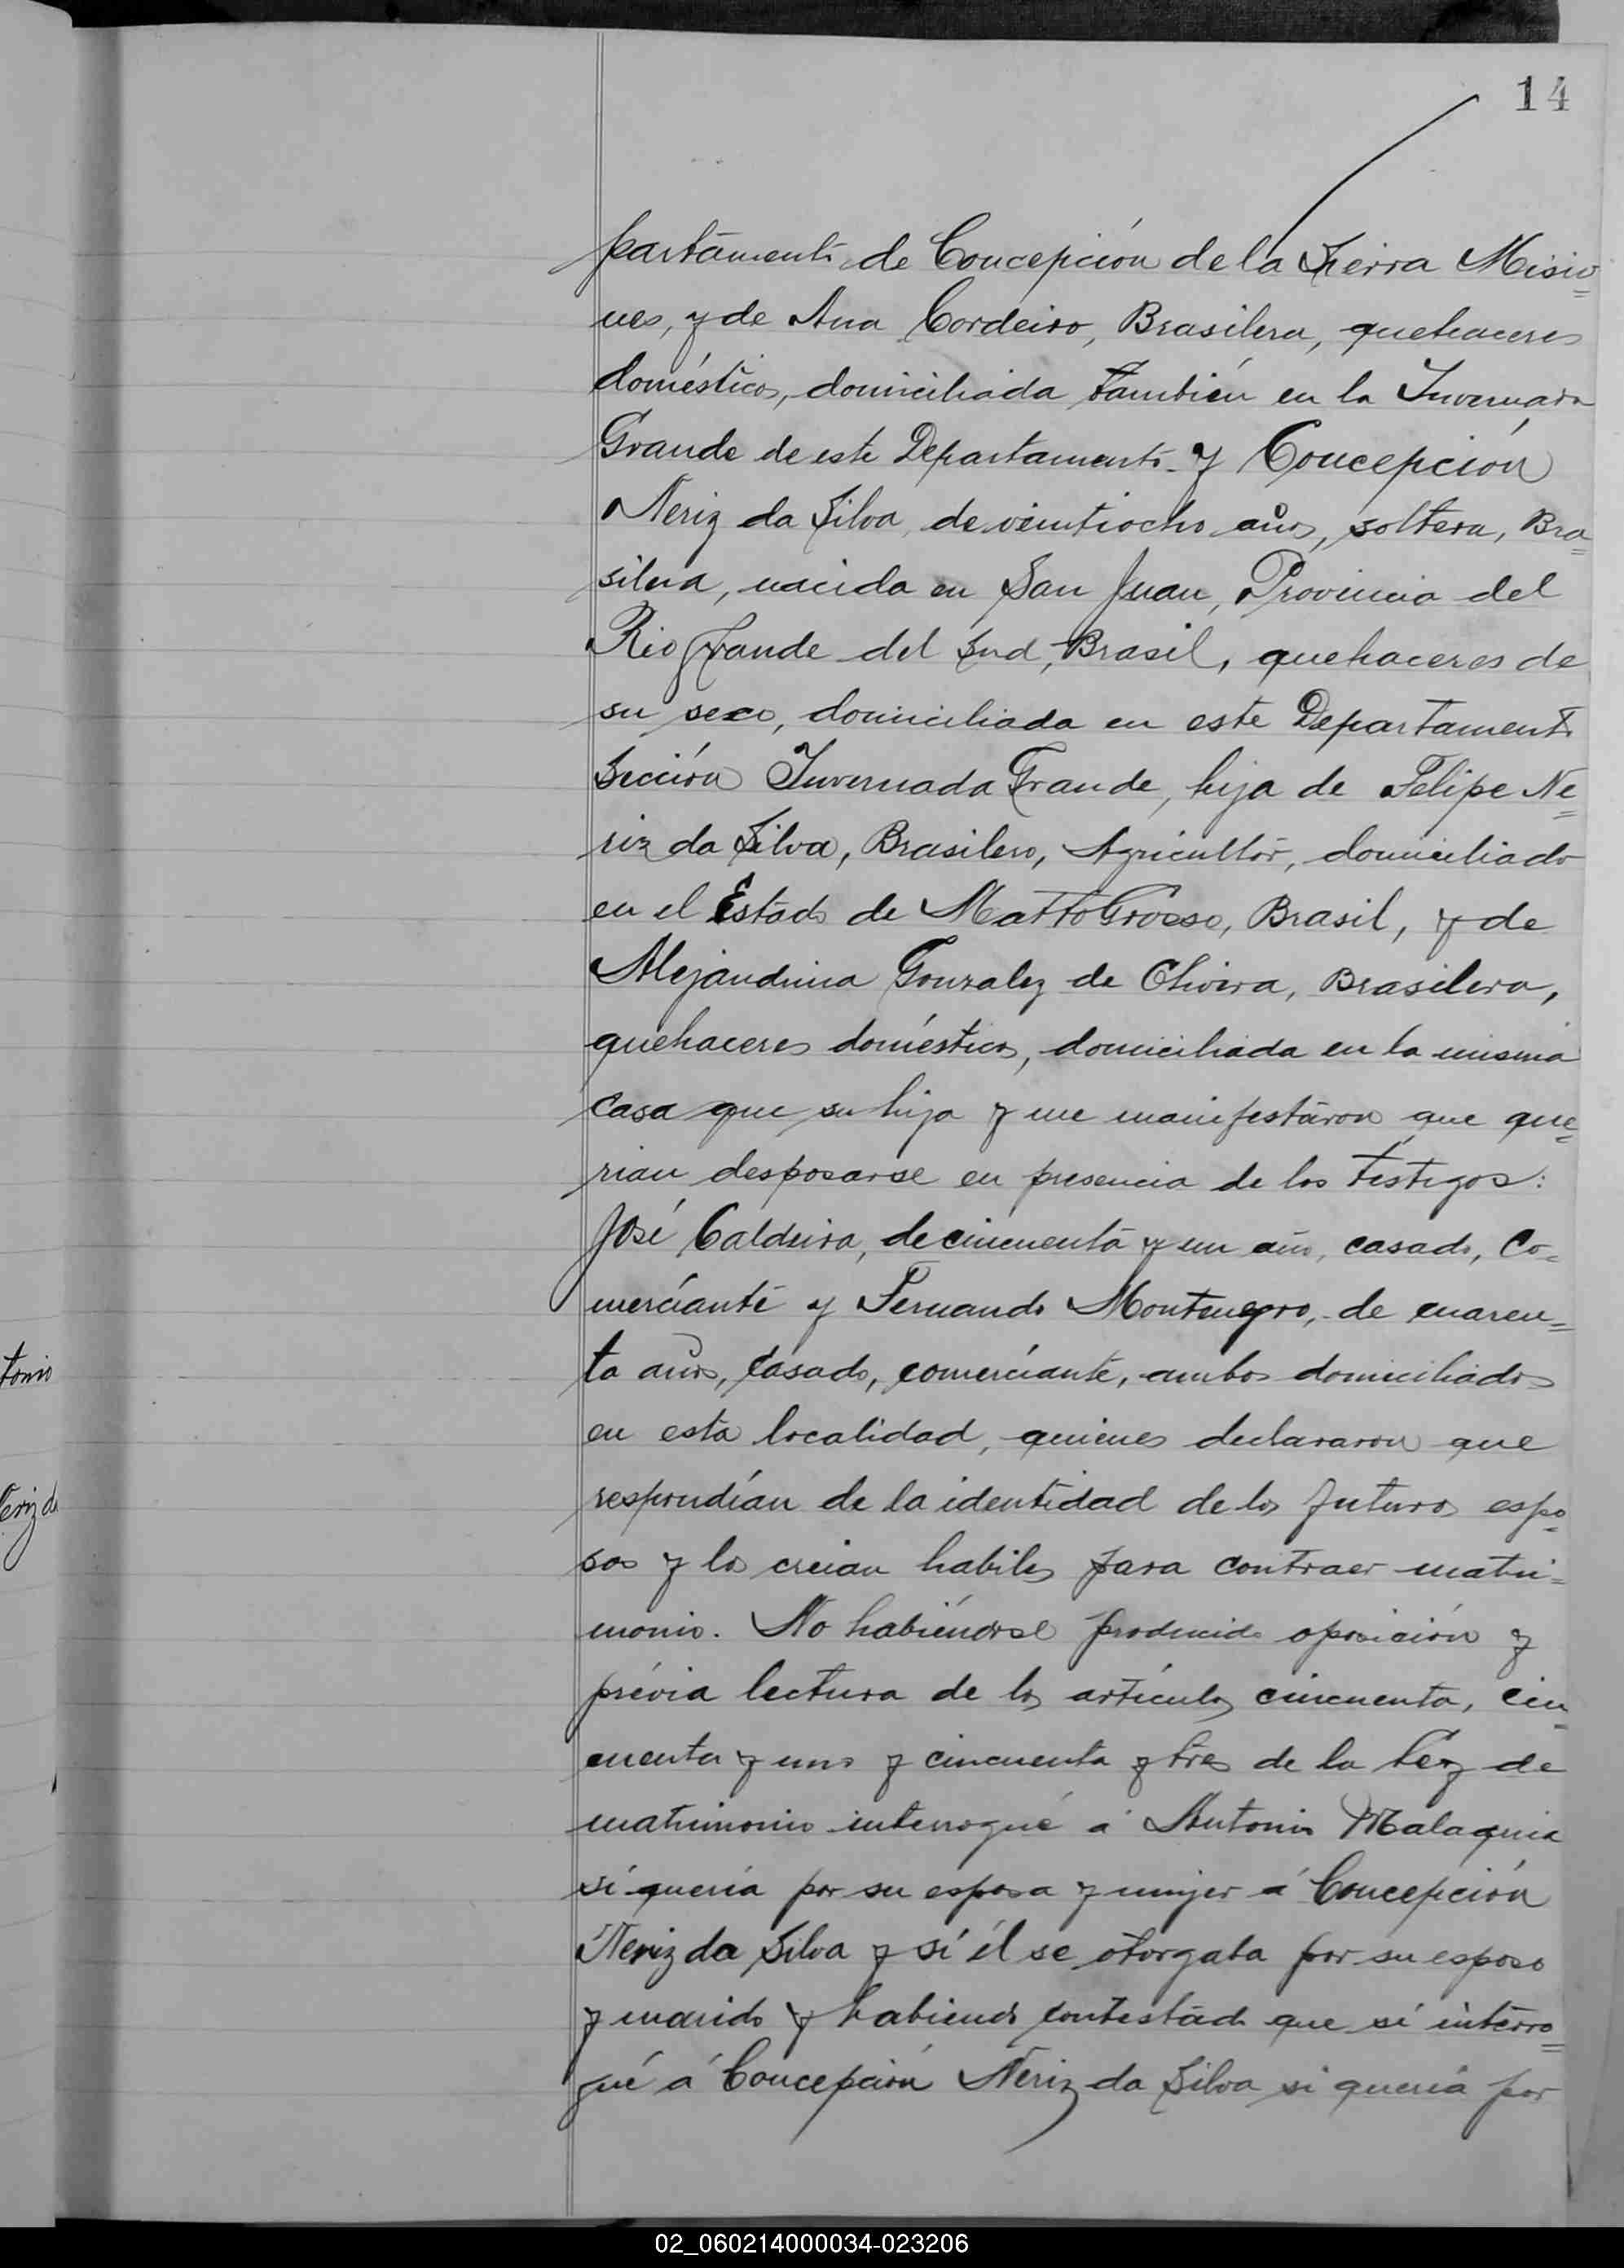 14
partamento de Concepción de la Sierra Misio
nes, y de Ana Cordeiro, Brasilera, quehaceres
domésticos, domiciliada también en la Invernada
Grande de este Departamento y Concepción
Neriz da Silva, de veintiocho años, soltera, Bra=
silera, nacida en San Juan, Provincia del
Rio Grande del Sud, Brasil, quehaceres de
su sexo, domiciliada en este Departamento
Sección Invernada Grande, hija de Felipe Ne=
riz da Silva, Brasilero, Agricultor, domiciliado
en el Estado de Matto Grosso, Brasil, y de
Alejandrina Gonzalez de Olivera, Brasilera,
quehaceres domésticos, domiciliada en la misma
casa que su hija y me manifestáron que que=
rian desposarse en presencia de los testigos:
José Caldeira, de cincuenta y un año, casado, Co=
merciante y Fernando Montenegro, de cuaren=
ta años, casado, comerciante, ambos domiciliados
en esta localidad, quienes declararon que
respondían de la identidad de los futuros espo=
sos y los creian habiles para contraer matri=
monio. No habiéndose producido oposición y
prévia lectura de los artículos cincuenta, cin=
cuenta y uno y cincuenta y tres de la Ley de
matrimonio interrogué á Antonio Malaquia
si quería por su esposa y mujer á Concepción
Neriz da Silva y si él se otorgaba por su esposo
y marido y habiendo contestado que si interro=
gué á Concepción Neriz da Silva si quería por
tonio
eriz da
02_060214000034-023206